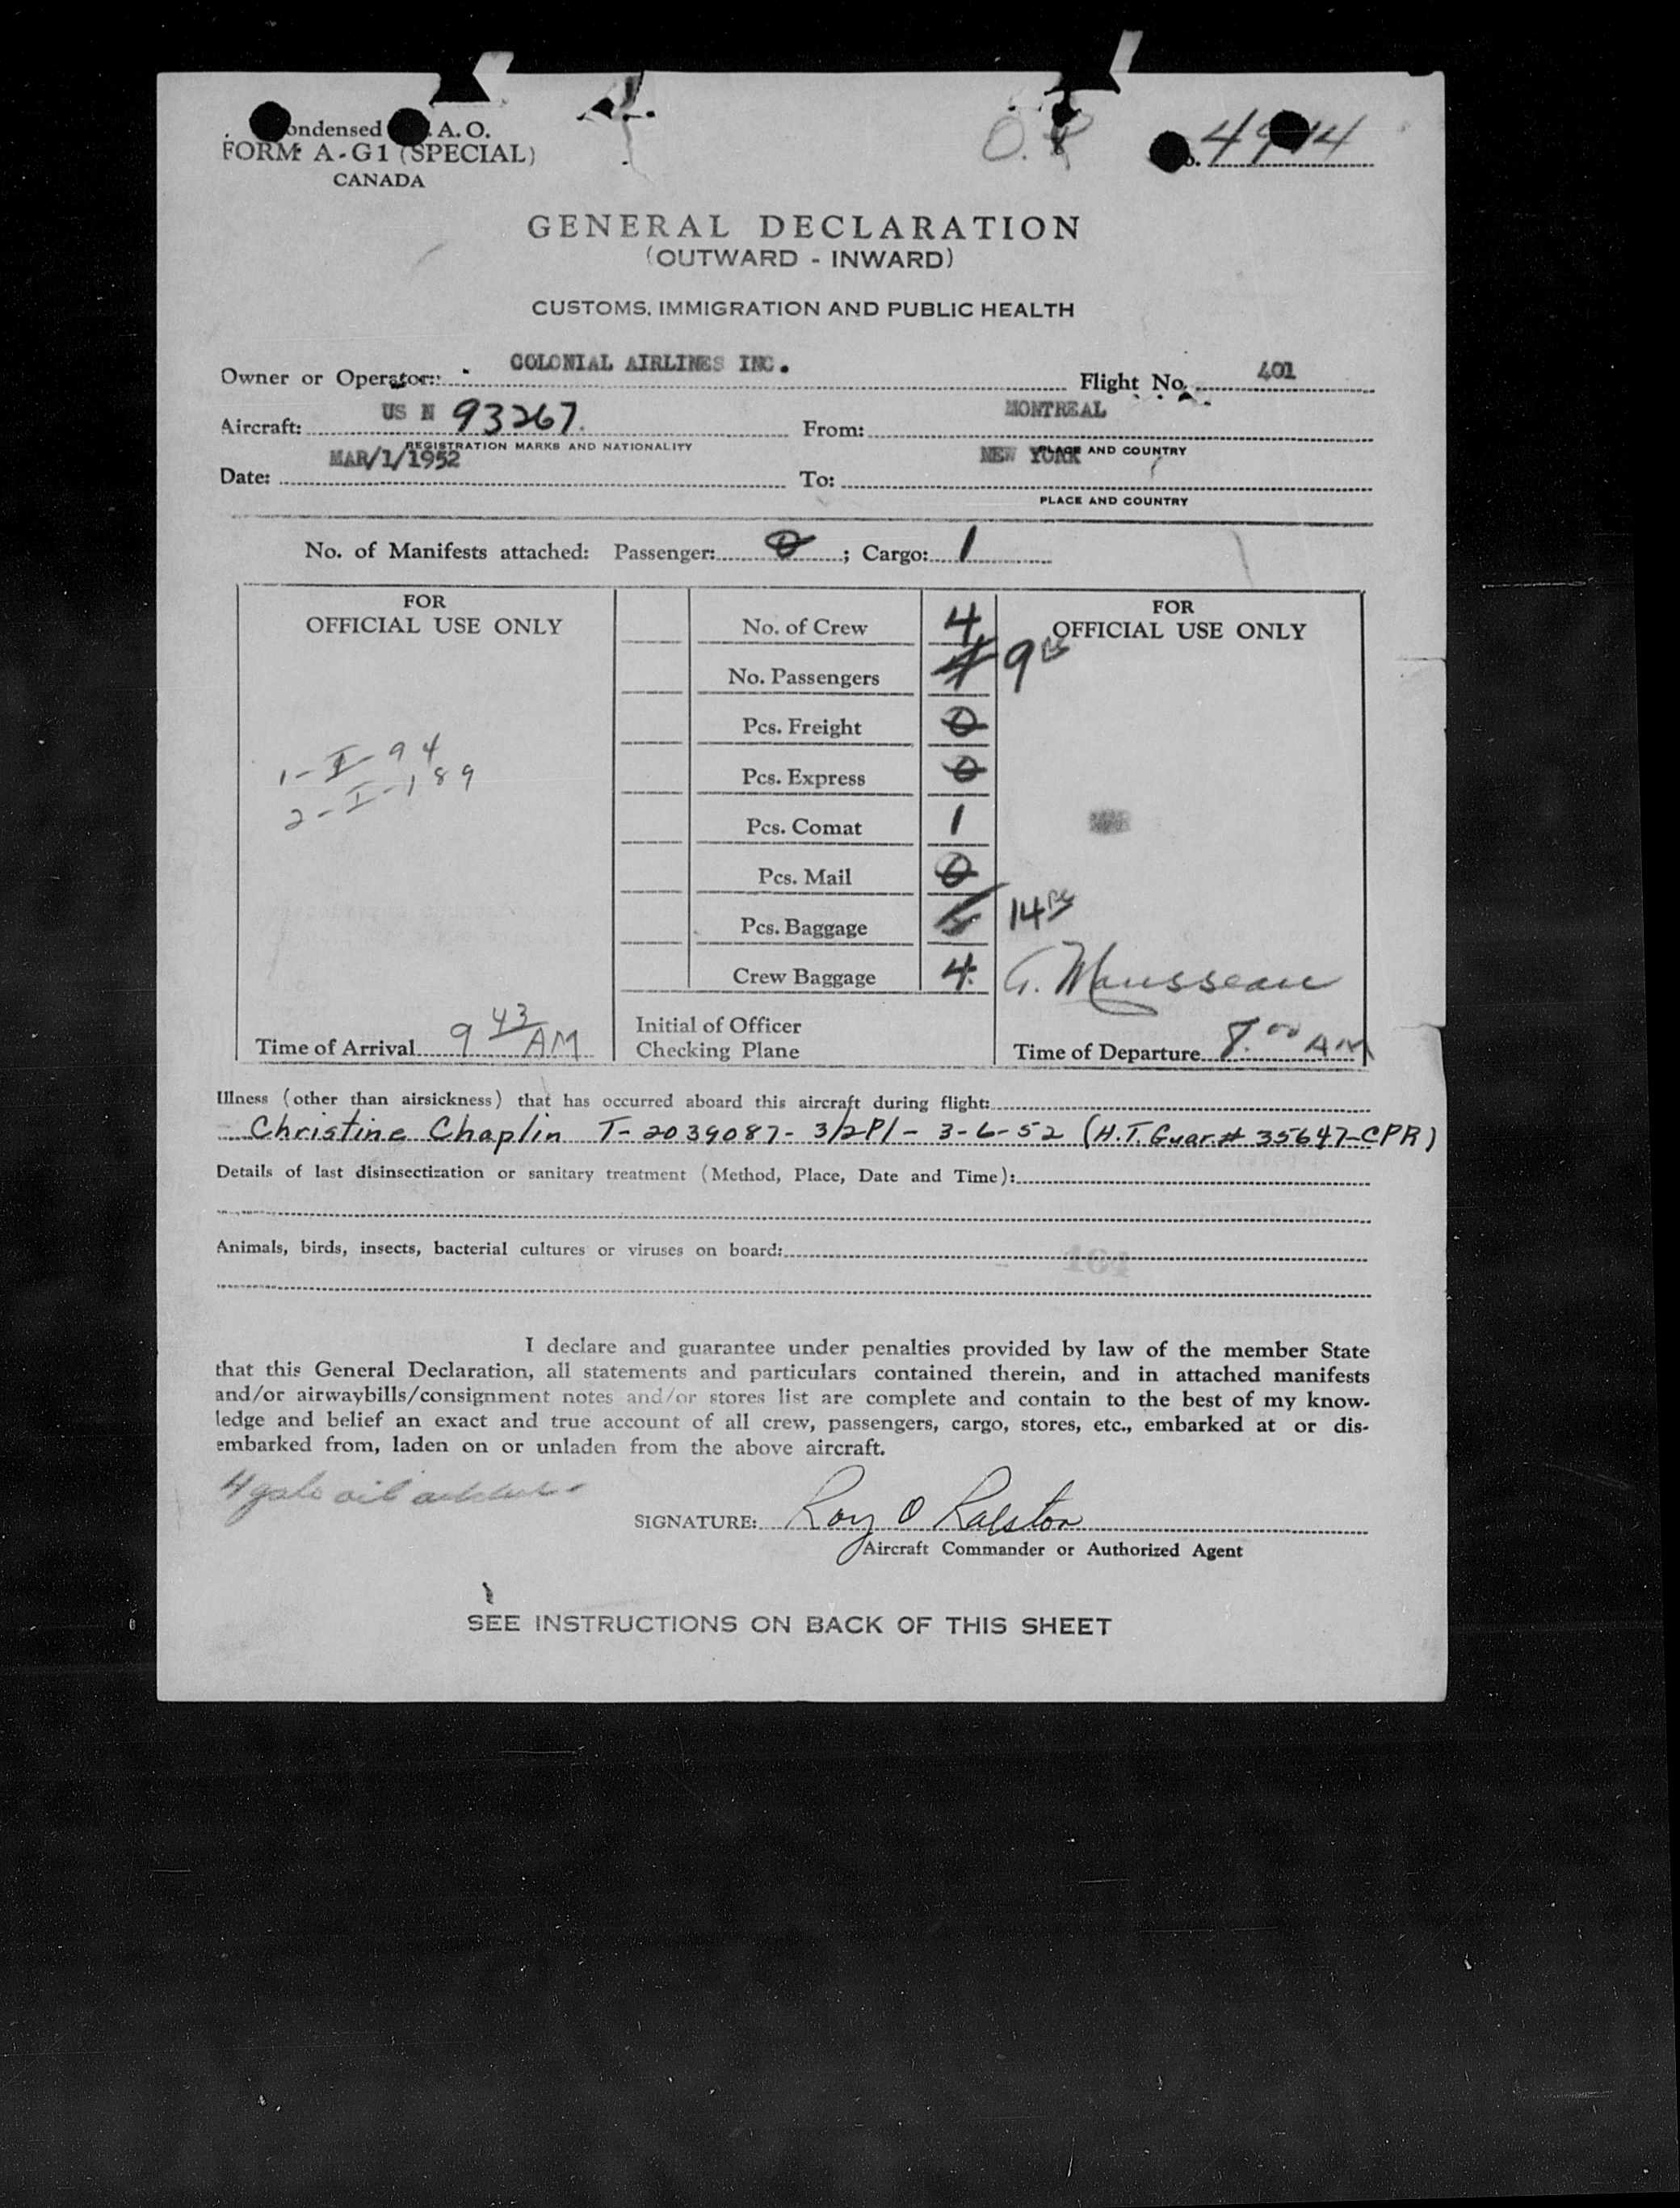 ondensed A. O.
FORM A-G1 (SPECIAL)
CANADA
GENERAL DECLARATION
(OUTWARD - INWARD)
CUSTOMS, IMMIGRATION AND PUBLIC HEALTH
Owner or Operator: COLONIAL AIRLINES INC. Flight No. 401
Aircraft: US N 93267 From: MONTREAL
REGISTRATION MARKS AND NATIONALITY PLACE AND COUNTRY
Date: MAR/1/1952 To: NEW YORK
PLACE AND COUNTRY
No. of Manifests attached: Passenger: 0; Cargo: 1
FOR
OFFICIAL USE ONLY
1-I-94
2-I-189
Time of Arrival 9 43 AM
No. of Crew 4
No. Passengers
Pcs. Freight 0
Pcs. Express 0
Pcs. Comat 1
Pcs. Mail 0
Pcs. Baggage
Crew Baggage 4
Initial of Officer
Checking Plane
FOR
OFFICIAL USE ONLY
9
14
Time of Departure 8.00 AM
Illness (other than airsickness) that has occurred aboard this aircraft during flight:
Christine Chaplin T-2039087-3/2P1-3-6-52 (H.T. Guar # 35647-CPR)
Details of last disinsectization or sanitary treatment (Method, Place, Date and Time):
Animals, birds, insects, bacterial cultures or viruses on board:
I declare and guarantee under penalties provided by law of the member State
that this General Declaration, all statements and particulars contained therein, and in attached manifests
and/or airwaybills/consignment notes and/or stores list are complete and contain to the best of my know-
ledge and belief an exact and true account of all crew, passengers, cargo, stores, etc., embarked at or dis-
embarked from, laden on or unladen from the above aircraft.
4 gals oil added
SIGNATURE: Roy O Ralston
Aircraft Commander or Authorized Agent
SEE INSTRUCTIONS ON BACK OF THIS SHEET